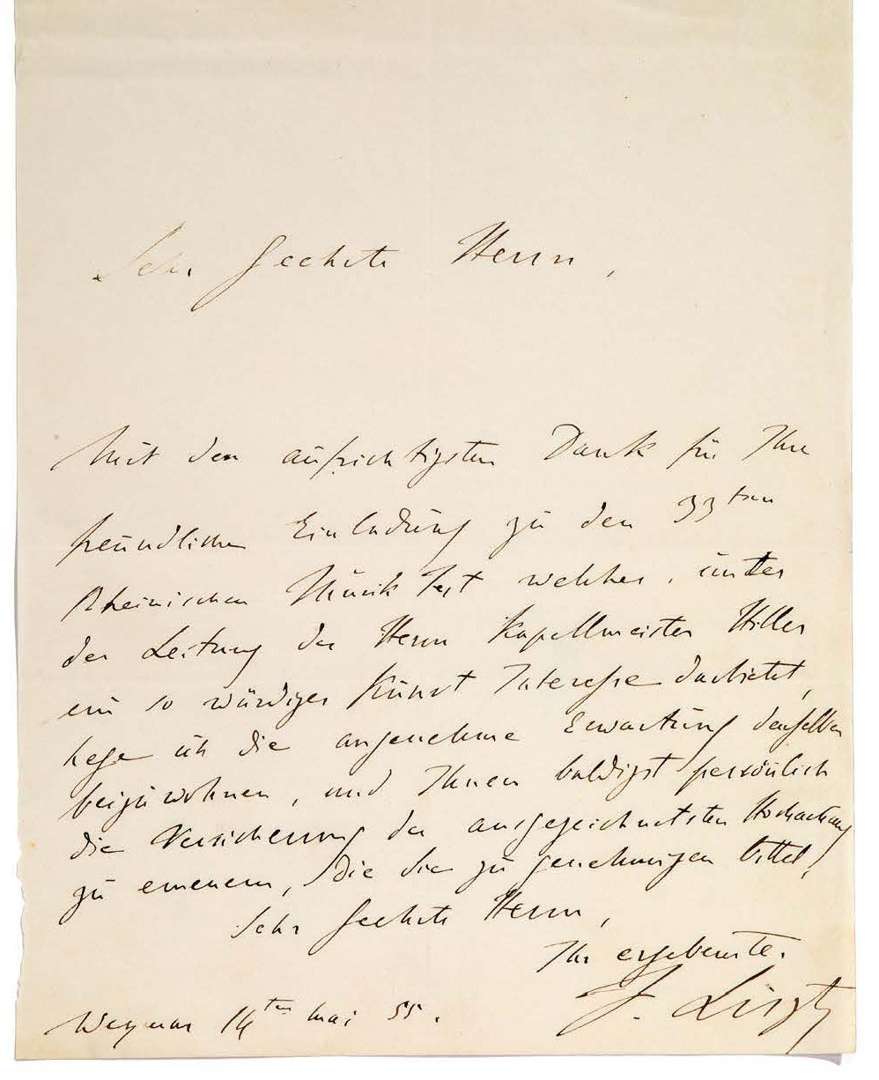 Sehr Geehrte Herrn,
Mit den aufrichtigsten Dank für Ihre
freundlichen Einladung zu den 33ten
Rheinischen Musik Fest welches, unter
der Leitung des Herrn Kapellmeister Hiller
ein so würdiges Kunst Interesse darbietet,
hege ich die angenehme Erwartung denselben
beizuwohnen, und Ihnen baldigst persönlich
die Versicherung der ausgezeichnetsten Hochachtung
zu erneuern, die Sie zu genehmigen bittet,
Sehr Geehrte Herrn,
Ihr ergebenster
F. Liszt
Weymar 14ten Mai 55.